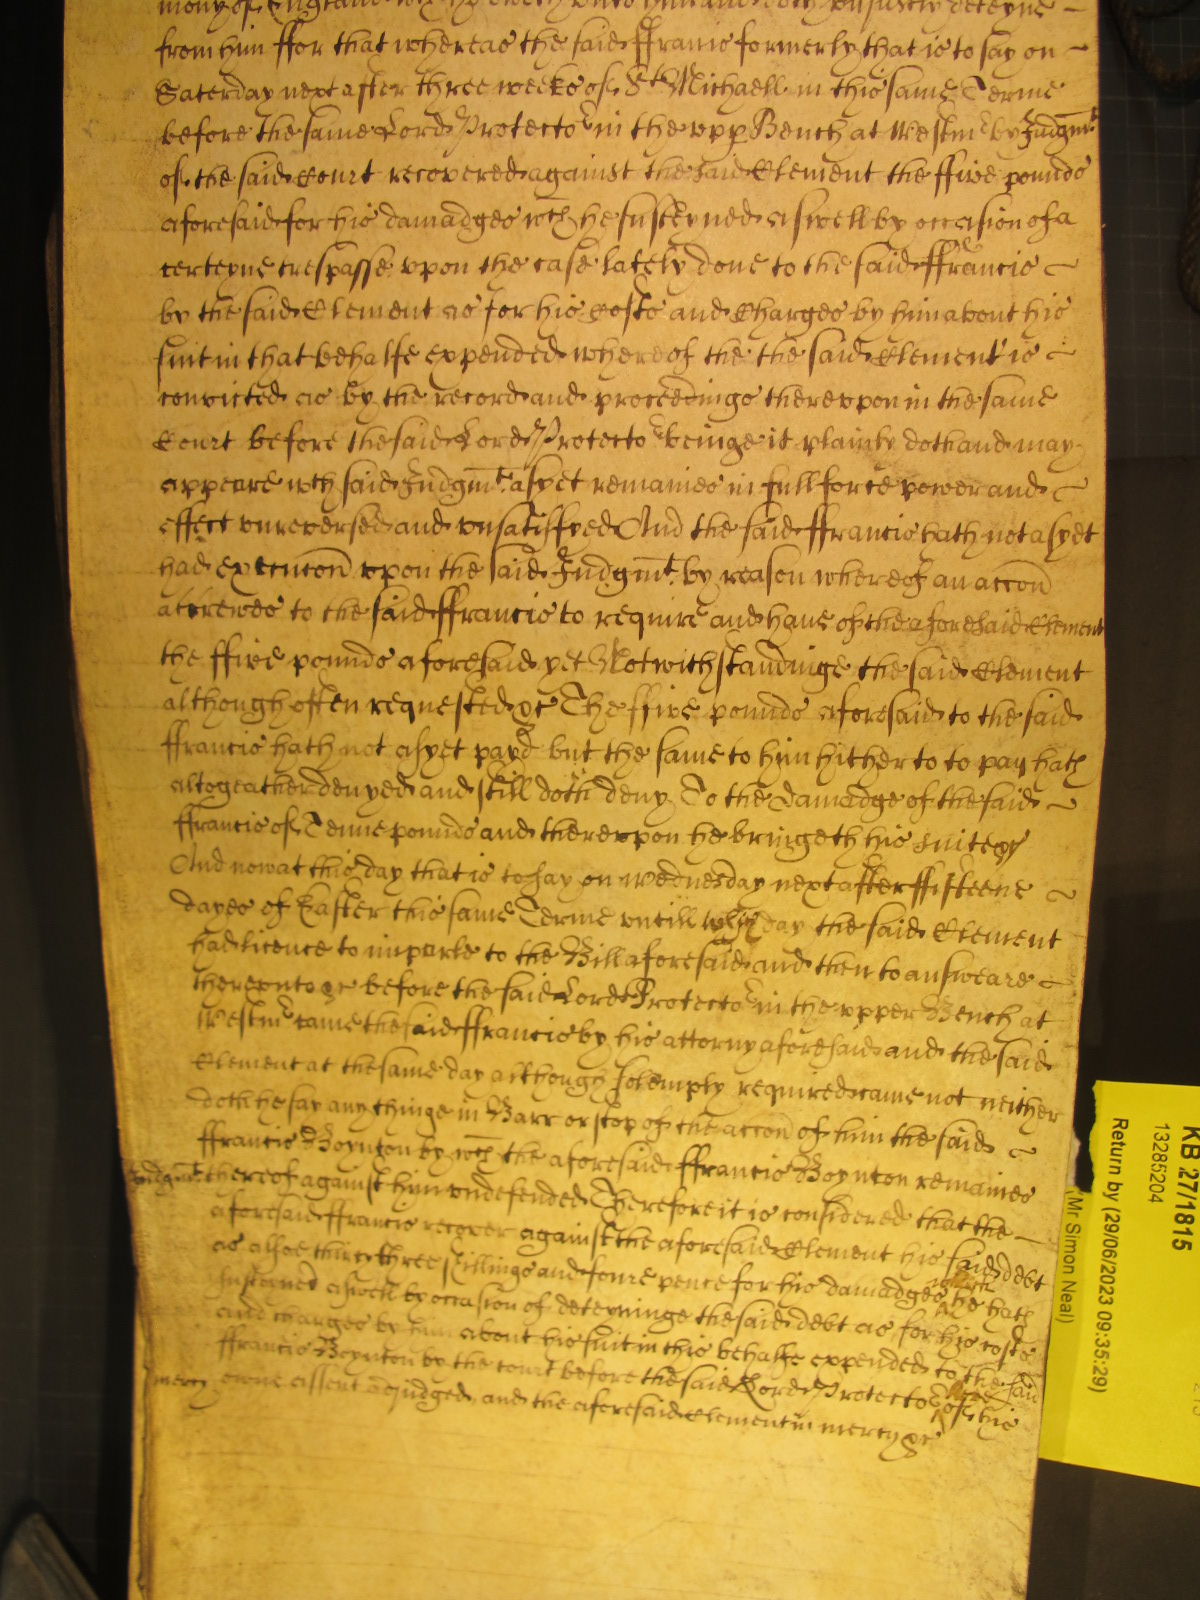 mony of England wch he oweth unto him and doth unjustly deteyne
from him ffor that whereas the said ffrancis formerly that is to say on
Saterday next after three weekes of St Michaell in this same Terme
before the same Lord Protector in the upp Bench at Westmr by Judgmt
of the said Court recovered against the said Clement the ffive pounds
aforesaid for his damadges wch he susteyned aswell by occasion of a
certeyne trespasse upon the case lately done to the said ffrancis
by the said Clement as for his Costs and Charges by him about his
suit in that behalfe expended whereof the the said Clement is
convicted as by the record and proceedings thereupon in the same
Court before the said Lord Protector beinge it plainly doth and may
appeare wch said Judgmt asyet remaines in full force power and
effect unreversed and unsatisfyed And the said ffrancis hath not asyet
had execucon upon the said Judgmt by reason whereof an accon
accrewes to the said ffrancis to require and have of the aforesaid Clement
the ffive pounds aforesaid yet Notwithstandinge the said Clement
although often requested &c The ffive pounds aforesaid to the said
ffrancis hath not asyet payd but the same to him hitherto to pay hath
altogeather denyed and still doth deny To the damadge of the said
ffrancis of Tenne pounds and thereupon he bringeth his suite &c
And now at this day that is to say on Wednesday next after ffifteene
dayes of Easter this same Terme untill wch day the said Clement
had licence to imparle to the Bill aforesaid and then to answeare
thereunto &c before the said Lord Protector in the upper Bench at
Westmr came the said ffrancis by his attorny aforesaid and the said
Clement at the same day although solemply required came not neither
doth he say any thinge in Barr or stop of the accon of him the said
ffrancis Boynton by wch the aforesaid ffrancis Boynton remaines
Judgmt thereof against him undefended Therefore it is considered that the
aforesaid ffrancis recover against the aforesaid Clement his said debt
as alsoe thirty three shillings and foure pence for his damadges which he hath
susteined aswell by occasion of deteyninge the said debt as for his costs
and charges by him about his suit in this behalfe expended to the said
ffrancis Boynton by the court before the said Lord Protector here of his
mercy owne assent adjudged and the aforesaid Clement in mercy &c
KB 27/1815
13285204
Return by (29/06/2023 09:35:29)
(Mr Simon Neal)